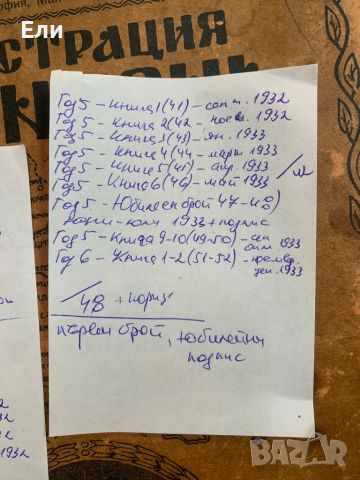 Ели
София, Мак
СТРАЦИЯ
Год 5 - Книга 1 (41) - септ. 1932
Год 5 - Книга 2 (42 - ноем. 1932
Год 5 - Книга 3 (43) - ян. 1933
Год 5 - Книга 4 (44 - март 1933
Год 5 - Книга 5 (45) - апр. 1933
Год 5 - Книга 6 (46) - май 1933
Год 5 - Юбилеен брой 47-48)
юли 1933 + подпис
Год 5 - Книга 9-10 (49-50) - сеп 1933
окт
Год 6 - Книга 1-2 (51-52) - ноември
дек. 1933
/48 + кориц
първи брой, юбилейни
подпис
1932
BAZAR